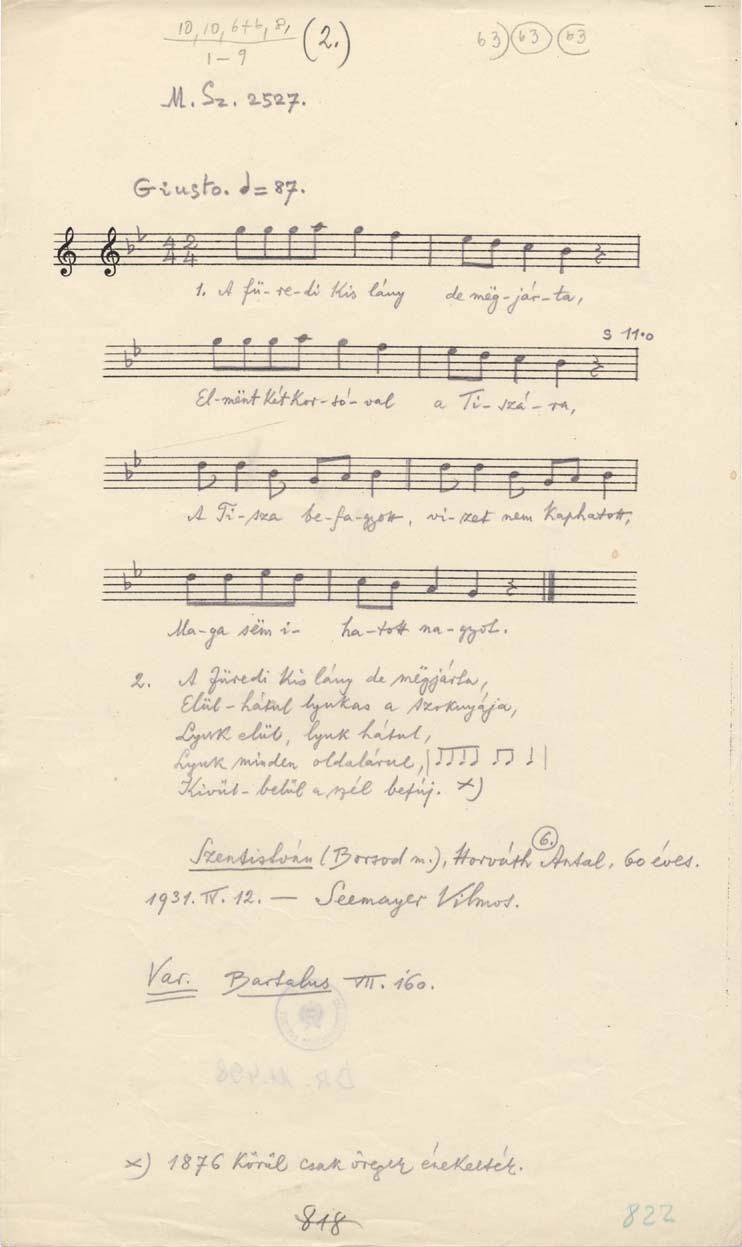 10, 10, 6+6, 8, (2.) 63) 63 63
1-9
M. Sz. 2527.
Giusto. d=87.
4 2
4 4
1. A fü-re-di kis lány de mëg-jár-ta,
s 11.0
El-mënt két kor-só-val a Ti-szá-ra,
A Ti-sza be-fa-gyott, vi-zet nem kaphatott,
Ma-ga sëm i- ha-tott na-gyot.
2. A füredi kis lány de mëgjárta,
Elül-hátul lyukas a szoknyája,
Lyuk elül, lyuk hátul,
Lyuk minden oldalárul,
Kivül-belül a szél befúj. x)
6.
Szentistván (Borsod m.), Horváth Antal, 60 éves.
1931. IV. 12. — Seemayer Vilmos.
Var. Bartalus VII. 160.
x) 1876 körül csak öregek énekelték.
818 822